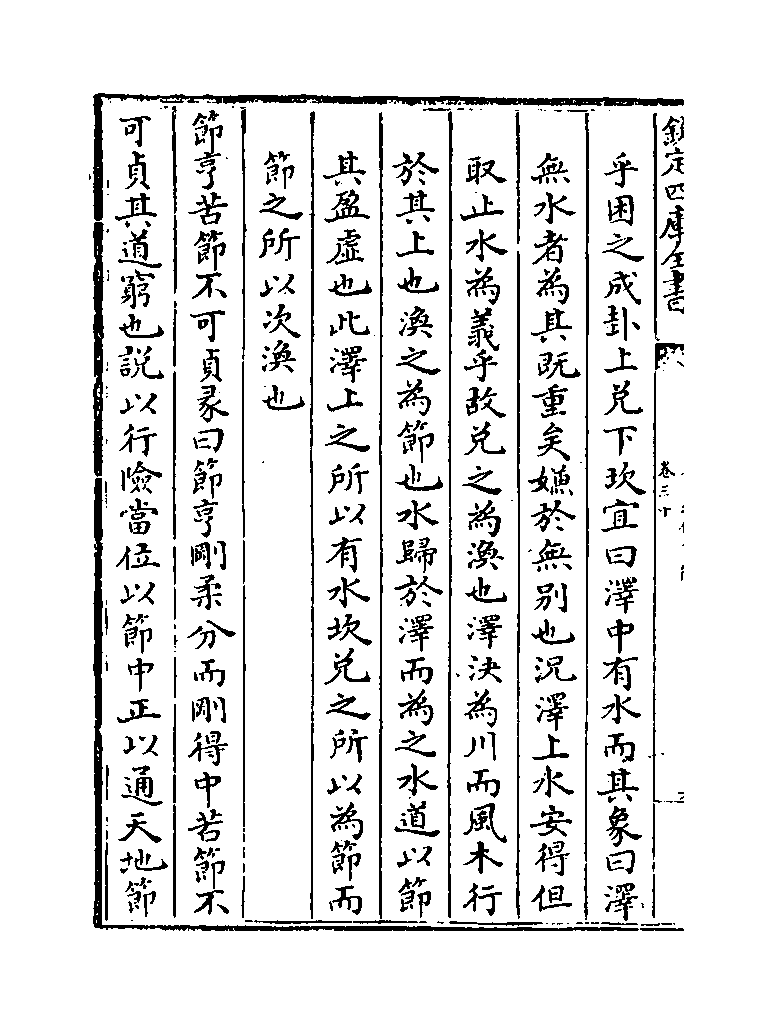 欽定四庫全書
卷三十
乎困之成卦上兑下坎宜曰澤中有水而其象曰澤
無水者為其既重矣嫌於無别也況澤上水安得但
取止水為義乎故兑之為渙也澤決為川而風木行
於其上也渙之為節也水歸於澤而為之水道以節
其盈虛也此澤上之所以有水坎兑之所以為節而
節之所以次渙也
節亨苦節不可貞彖曰節亨剛柔分而剛得中苦節不
可貞其道窮也說以行險當位以節中正以通天地節